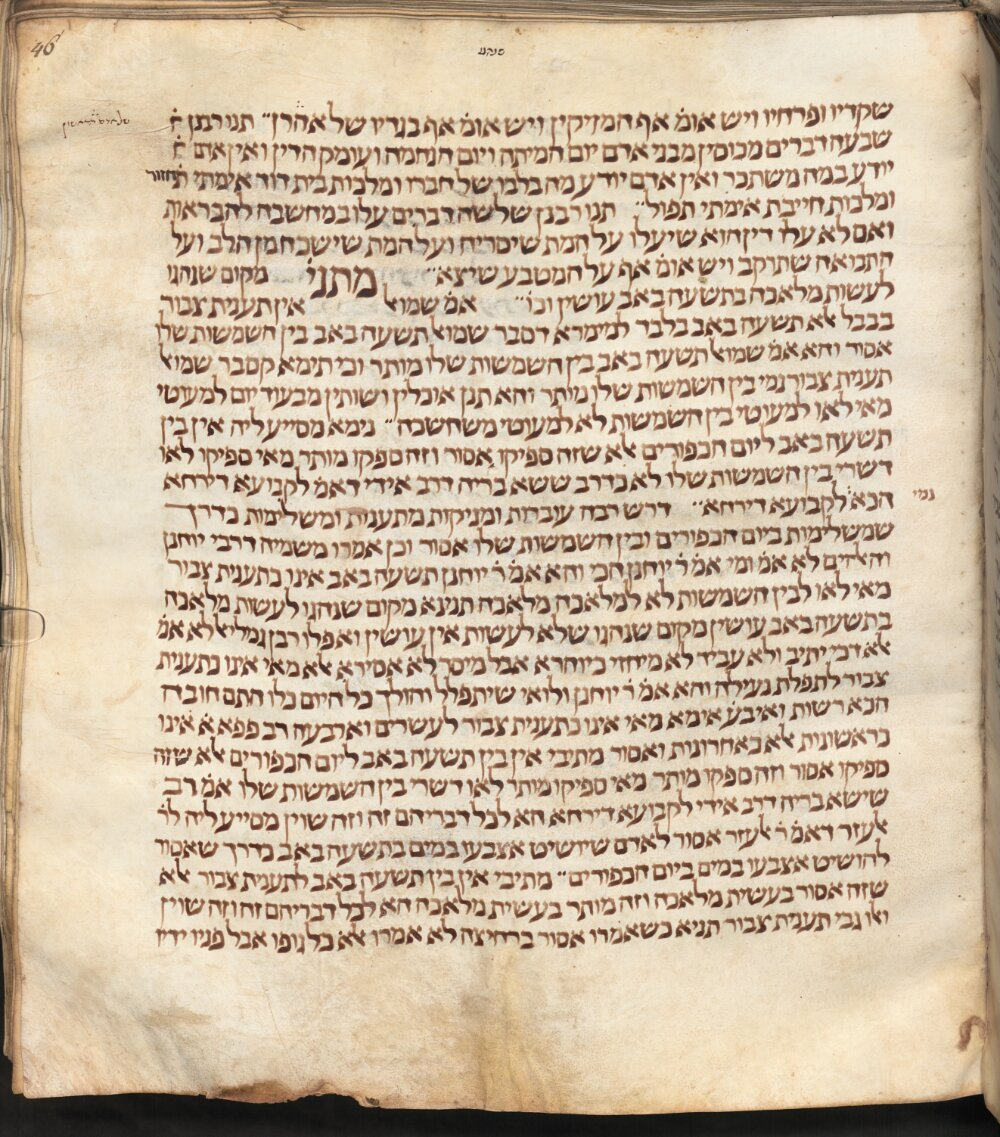 46
פסחים
שקדיו ופרחיו ויש אומ׳ אף המזיקין ויש אומ׳ אף בגדיו של אהרן״ תנו רבנן
שבעה דברים מכוסין מבני אדם יום המיתה ויום הנחמה ועומק הדין ואין אדם
יודע במה משתכר ואין אדם יודע מה בלבו של חברו ומלכות בית דוד אימתי תחזור
ומלכות חייבת אימתי תפול״ תנו רבנן שלשה דברים עלו במחשבה להבראות
ואם לא עלו דין הוא שיעלו על המת שיסריח ועל המת שישכח מן הלב ועל
התבואה שתרקב ויש אומ׳ אף על המטבע שיצא״ מתני׳ מקום שנהגו
לעשות מלאכה בתשעה באב עושין וכו׳״ אמ׳ שמואל אין תענית צבור
בבבל אלא תשעה באב בלבד למימרא דסבר שמואל תשעה באב בין השמשות שלו
אסור והא אמ׳ שמואל תשעה באב בין השמשות שלו מותר וכי תימא קסבר שמואל
תענית צבור נמי בין השמשות שלו מותר והא תנן אוכלין ושותין מבעוד יום למעוטי
מאי לאו למעוטי בין השמשות לא למעוטי משחשכה״ נימא מסייע ליה אין בין
תשעה באב ליום הכפורים אלא שזה ספיקו אסור וזה ספקו מותר מאי ספיקו לאו
דשרי בין השמשות שלו לא כדרב ששא בריה דרב אידי דאמ׳ לקבועא דירחא
הכא לקבועא דירחא״ דרש רבה עוברות ומניקות מתענות ומשלימות כדרך
נמי
שמשלימות ביום הכפורים ובין השמשות שלו אסור וכן אמרו משמיה דרבי יוחנן
והאדים לא אמ׳ ומי אמ׳ ר׳ יוחנן הכי והא אמ׳ ר׳ יוחנן תשעה באב אינו כתענית צבור
מאי לאו לבין השמשות לא למלאכה מלאכה תנינא מקום שנהגו לעשות מלאכה
בתשעה באב עושין מקום שנהגו שלא לעשות אין עושין ואפלו רבן גמליאל לא אמ׳
אלא דכי יתיב ולא עביד לא מיחזי כיוהרא אבל מיסר לא אסירא אלא מאי אינו כתענית
צבור לתפלת נעילה והא אמ׳ ר׳ יוחנן ולואי שיתפלל והולך כל היום כלו התם חובה
הכא רשות ואיבע׳ אימא מאי אינו כתענית צבור לעשרים וארבעה רב פפא א׳ אינו
כראשונות אלא כאחרונות ואסור מתיבי אין בין תשעה באב ליום הכפורים אלא שזה
ספיקו אסור וזה ספקו מותר מאי ספיקו מותר לאו דשרי בין השמשות שלו אמ׳ רב
שישא בריה דרב אידי לקבועא דירחא הא לכל דבריהם זה וזה שוין מסייע ליה לר׳
אלעזר דאמ׳ ר׳ אלעזר אסור לאדם שיושיט אצבעו במים בתשעה באב כדרך שאסור
להושיט אצבעו במים ביום הכפורים״ מתיבי אין בין תשעה באב לתענית צבור אלא
שזה אסור בעשית מלאכה וזה מותר בעשית מלאכה הא לכל דבריהם זה וזה שוין
ואלו גבי תענית צבור תניא כשאמרו אסור ברחיצה לא אמרו אלא כל גופו אבל פניו ידיו